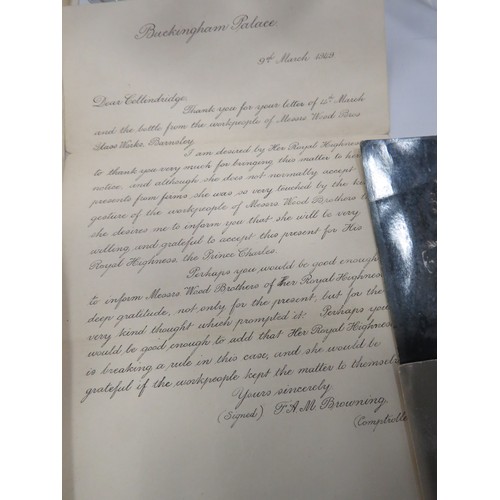 Buckingham Palace.
9th March 1949
Dear Collindridge,
Thank you for your letter of 4th March
and the bottle from the workpeople of Messrs Wood Bros
Glass Works, Barnsley.
I am desired by Her Royal Highness
to thank you very much for bringing this matter to
notice, and although she does not normally accept
presents from firms, she was so very touched by the
gesture of the workpeople of Messrs Wood Brothers
she desires me to inform you that she will be very
willing and grateful to accept this present for His
Royal Highness, the Prince Charles.
Perhaps you would be good enough
to inform Messrs Wood Brothers of Her Royal Highness
deep gratitude, not only for the present, but for the
very kind thought which prompted it. Perhaps you
would be good enough to add that Her Royal Highness
is breaking a rule in this case, and she would be
grateful if the workpeople kept the matter to themsel
Yours sincerely
(Signed) F A M Browning
(Comptrolle